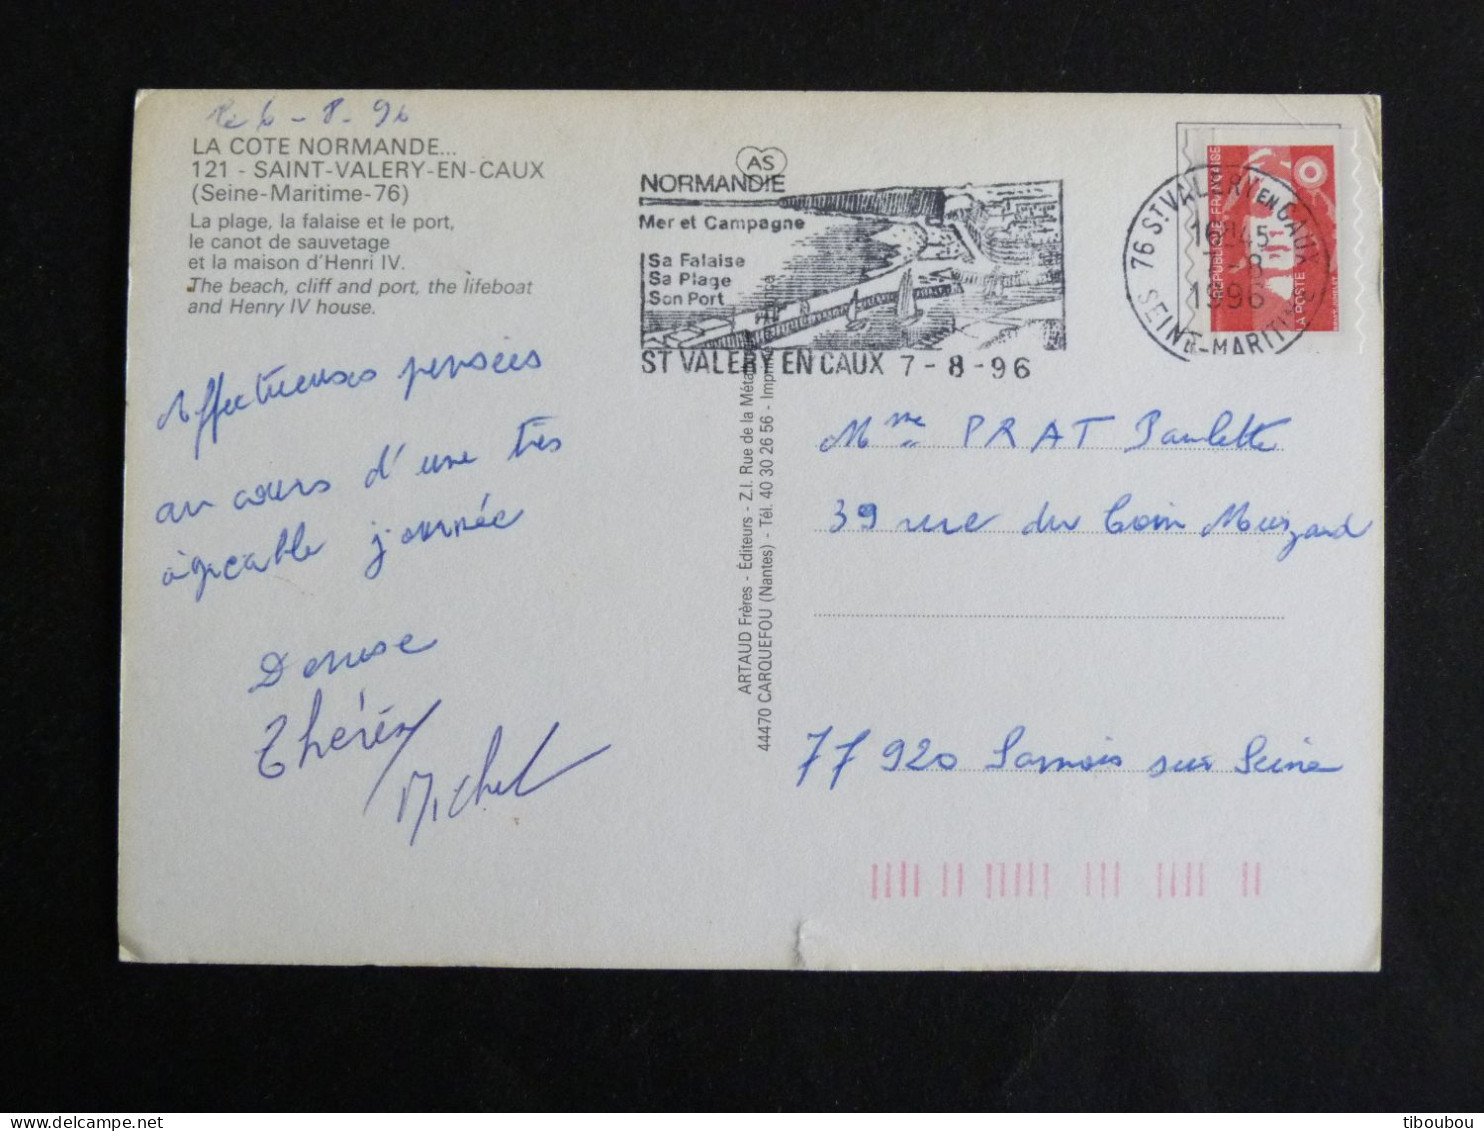 le 6-8-96
LA COTE NORMANDE...
121 - SAINT-VALERY-EN-CAUX
(Seine-Maritime-76)
La plage, la falaise et le port,
le canot de sauvetage
et la maison d'Henri IV.
The beach, cliff and port, the lifeboat
and Henry IV house.
Affectueuses pensées
au cours d'une très
agréable journée
Denise
Thérèse
Michel
AS
NORMANDIE
Mer et Campagne
Sa Falaise
Sa Plage
Son Port
ST VALERY EN CAUX 7-8-96
ARTAUD Frères - Editeurs - Z.I. Rue de la Méta
44470 CARQUEFOU (Nantes) - Tél. 40 30 26 56 - Imprim
RÉPUBLIQUE FRANÇAISE
LA POSTE
76 ST VALERY EN CAUX
16H45
-8
1996
SEINE-MARITIME
Mme PRAT Paulette
39 rue du Coin Muzard
77 920 Samois sur Seine
tiboubou